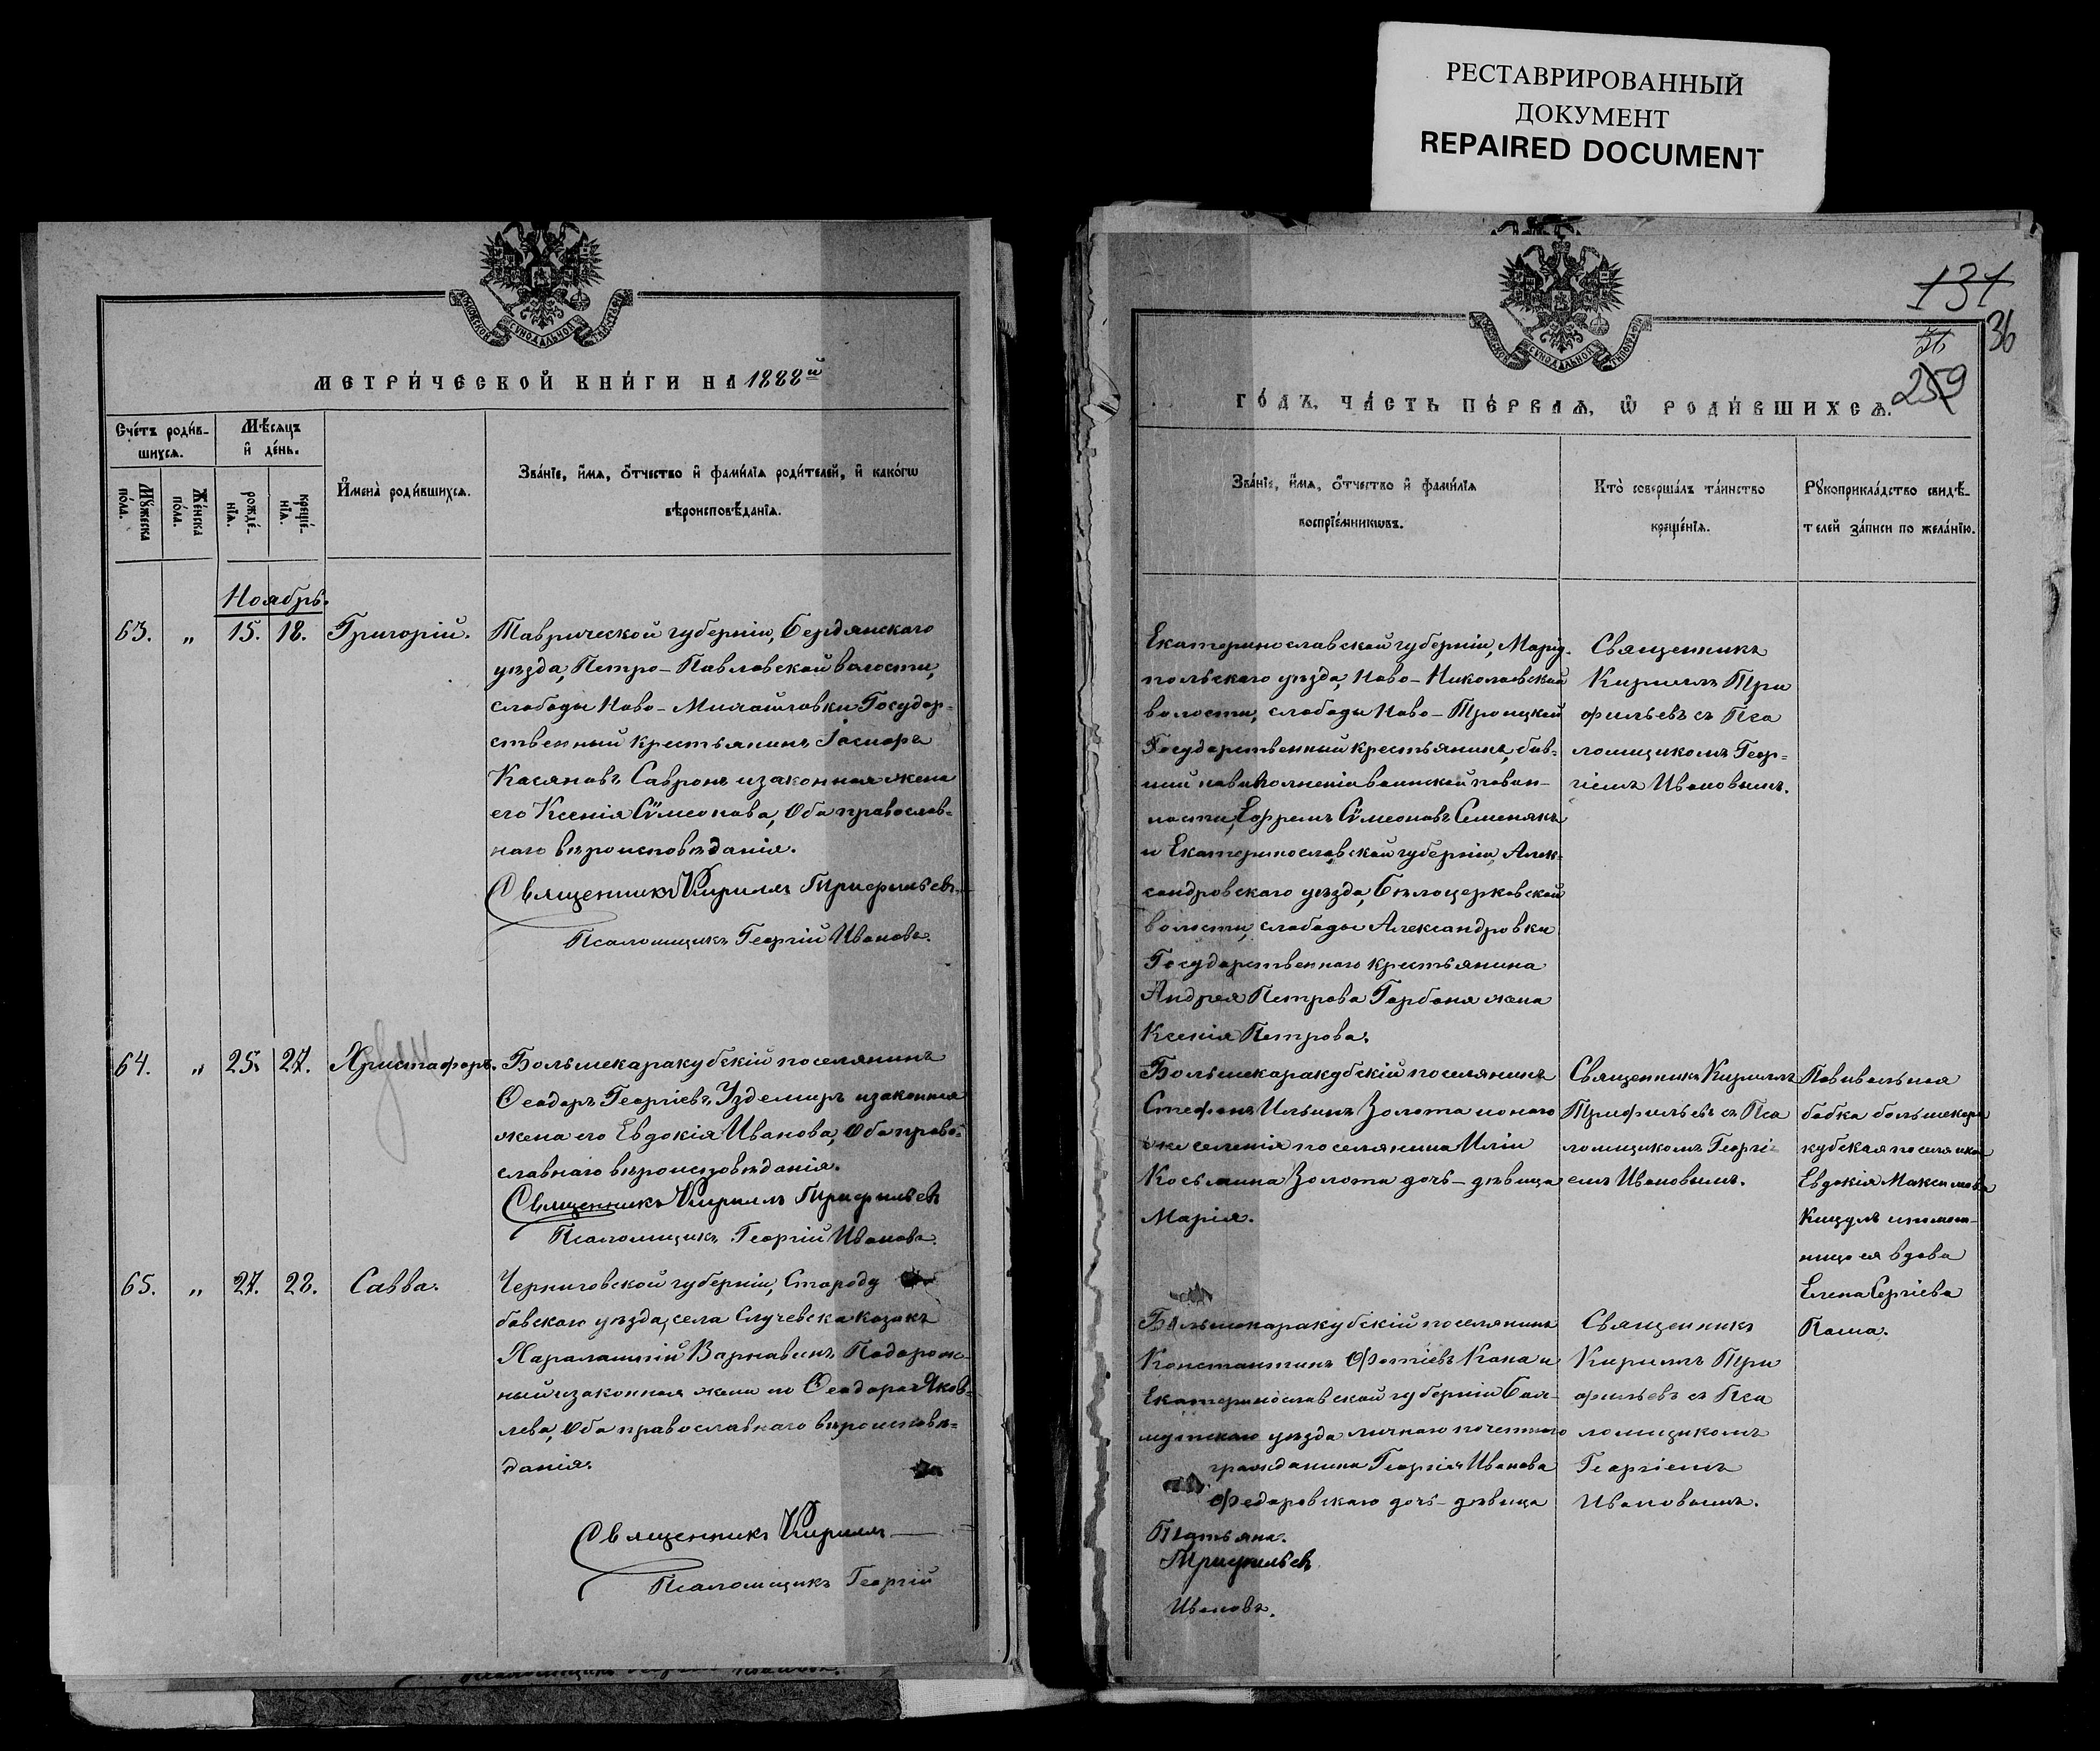 РЕСТАВРИРОВАННЫЙ
ДОКУМЕНТ
REPAIRED DOCUMENT
МЕТРИ́ЧЕСКОЙ КНИ́ГИ НА 1888й
Сче́тъ роди́в-
шихся.
Мѣ́сяцъ
и҆ де́нь.
Мꙋ́жеска
по́ла.
Же́нска
по́ла.
рожде́-
нїя.
креще́-
нїя.
И҆мена̀ роди́вшихся.
Зва́нїе, и҆́мя, ѻ҆́тчество и҆ фами́лїя роди́телей, и҆ како́гѡ
вѣроисповѣ́данїя.
Ноябрь.
63. „ 15. 18. Григорій.
Таврической губерніи, Бердянскаго
уѣзда, Петро-Павловской волости,
слободы Ново-
Государ-
ственный крестьянинъ
Касяновъ Савронъ и законная жена
его Ксенія Сѵмеонова, Оба православ-
наго вѣроисповѣданія.
Священникъ Кириллъ Трифильевъ
Псаломщикъ Георгій Ивановъ.
64. „ 25. 27. Христофоръ.
Большекаракубскій поселянинъ
Ѳеодоръ Георгіевъ Уздемиръ и законная
жена его Евдокія Иванова, Оба право-
славнаго вѣроисповѣданія.
Священникъ Кириллъ Трифильевъ
Псаломщикъ Георгій Ивановъ.
65. „ 27. 28. Савва.
Черниговской губерніи, Староду
бовскаго уѣзда, села Случевска козакъ
Харалампій Варнавинъ Подорож-
ный и законная жена его Ѳеодора Яков-
лева, Оба православнаго вѣроисповѣ-
данія.
Священникъ Кириллъ
Псаломщикъ Георгій
131
36
36
259
ГО́ДЪ, ЧА́СТЬ ПЕ́РВАЯ, Ѡ҆ РОДИ́ВШИХСЯ.
Зва́нїе, и҆́мя, ѻ҆́тчество и҆ фами́лїя
воспрїе́мникѡвъ.
Кто̀ соверша́лъ та́инство
креще́нїя.
Рꙋкоприкла́дство свидѣ́-
телей за́писи по жела́нїю.
Екатеринославской губерніи, Маріу-
польскаго уѣзда, Ново-Николаевской
волости, слободы Ново-Троицкой
Государственный крестьянинъ, быв-
воинской повин-
ности, Ефремъ Сѵмеоновъ Семенякъ
и Екатеринославской губерніи, Алек-
сандровскаго уѣзда, Бѣлоцерковской
волости, слободы Александровки
Государственнаго крестьянина
Андрея Петрова Горбаня жена
Ксенія Петрова.
Священникъ
Кириллъ Три
фильевъ съ Пса
ломщикомъ Геор-
гіемъ Ивановымъ.
Большекаракубскій поселянинъ
Стефанъ Ильинъ Золота и онаго
же селенія поселянина Иліи
Косьмина Золота дочь-дѣвица
Марія.
Священникъ Кириллъ
Трифильевъ съ Пса
ломщикомъ Георгі-
емъ Ивановымъ.
Повивальная
бабка большекара
кубская поселянка
Евдокія Максимова
Кицулъ и помощ-
ница ея вдова
Елена Сергіева
Паша.
Большекаракубскій поселянинъ
Константинъ Фотіевъ Кана и
Екатеринославской губерніи Бах-
мутскаго уѣзда личнаго почетнаго
гражданина Георгія Иванова
Федоровскаго дочь-дѣвица
Татьяна.
Трифильевъ
Ивановъ.
Священникъ
Кириллъ Три
фильевъ съ Пса
ломщикомъ
Георгіемъ
Ивановымъ.